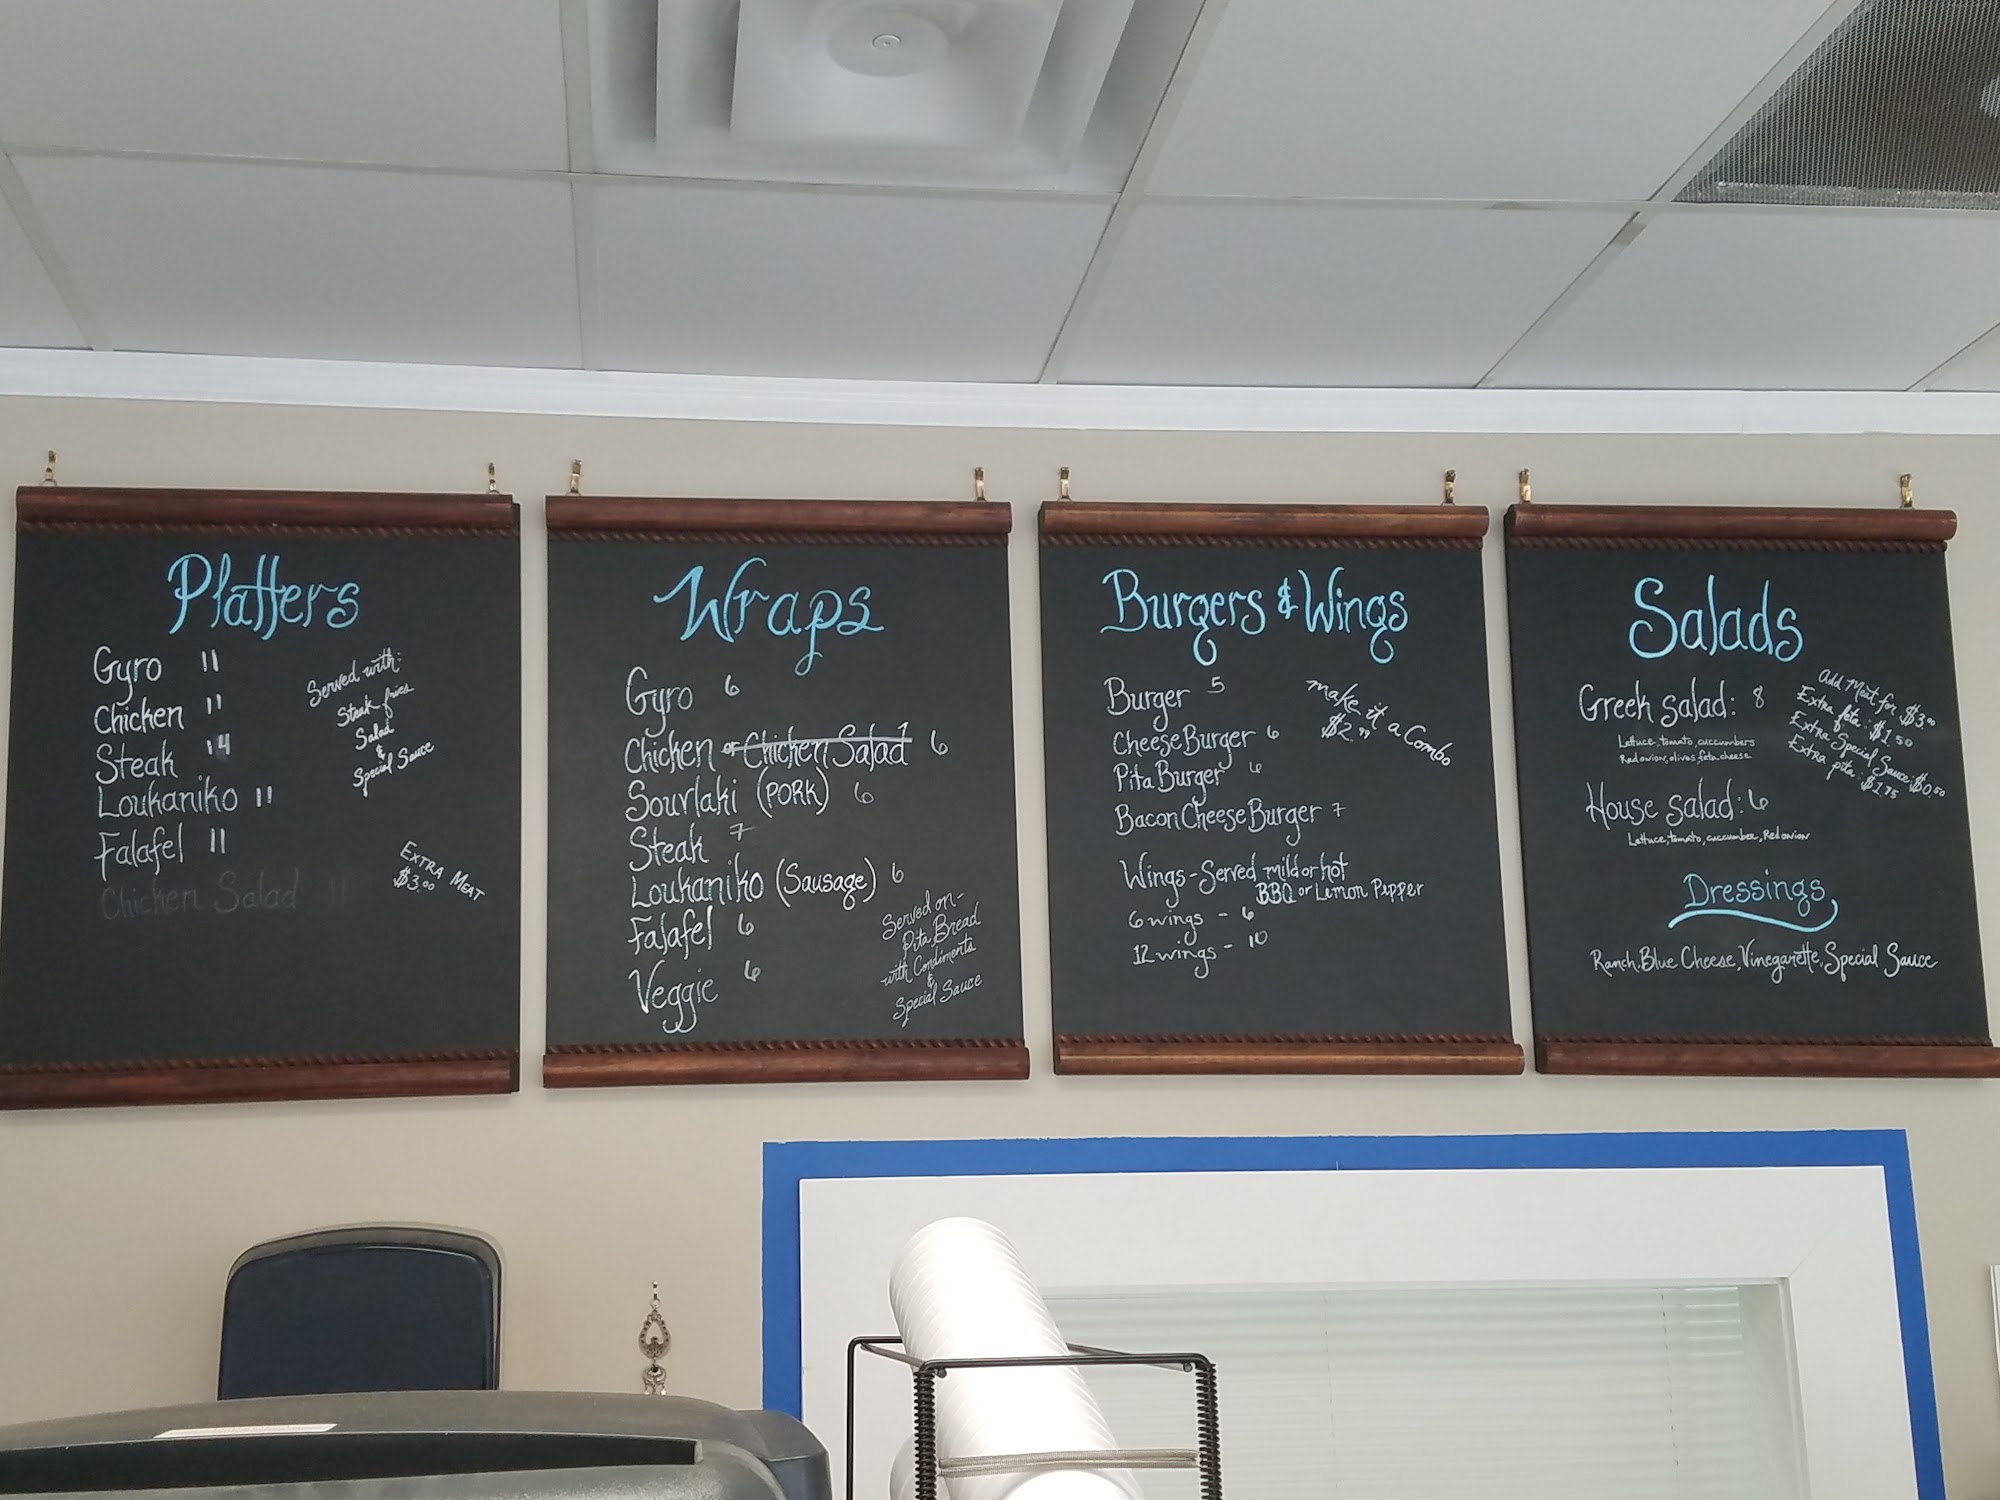 Platters
Gyro 11
Chicken 11
Steak 14
Loukaniko 11
Falafel 11
Chicken Salad 11
Served with:
Steak fries
Salad
&
Special Sauce
EXTRA MEAT
$3.00
Wraps
Gyro 6
Chicken or Chicken Salad 6
Sourlaki (PORK) 6
Steak 7
Loukaniko (Sausage) 6
Falafel 6
Veggie 6
Served on-
Pita Bread
with Condiments
&
Special Sauce
Burgers & Wings
Burger 5
CheeseBurger 6
Pita Burger 6
Bacon CheeseBurger 7
make it a Combo
$2.99
Wings - Served mild or hot
BBQ or Lemon Pepper
6 wings - 6
12 wings - 10
Salads
Greek salad: 8
Lettuce, tomato, cuccumbers
Red onion, olives feta cheese
House salad: 6
Lettuce, tomato, cuccumber, Red onion
Add Meat for $3.00
Extra feta: $1.50
Extra Special Sauce: $0.50
Extra pita: $1.75
Dressings
Ranch, Blue Cheese, Vinegarette, Special Sauce